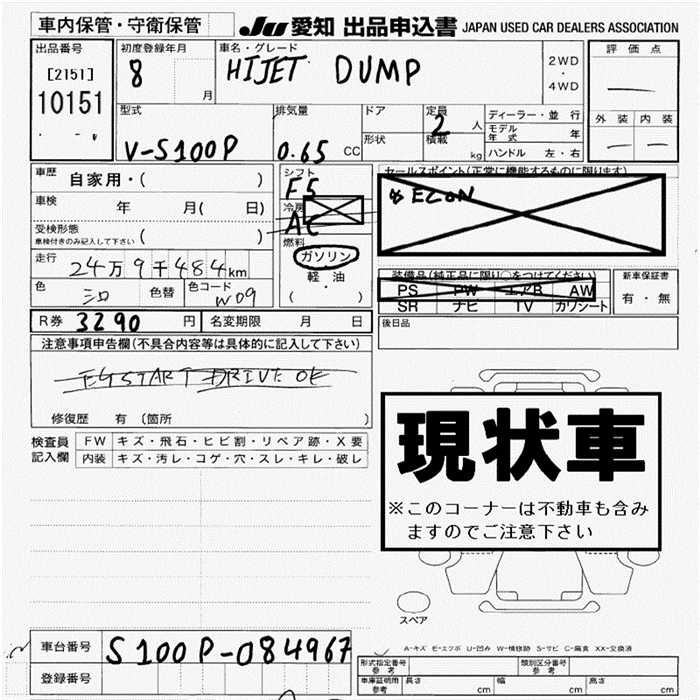 車内保管・守衛保管
JU 愛知 出品申込書 JAPAN USED CAR DEALERS ASSOCIATION
出品番号
[2151]
10151
初度登録年月
8 月
車名・グレード
HIJET DUMP
2WD
・
4WD
評価点
外装 内装
型式
V-S100P
排気量
0.65 CC
ドア
形状
定員
2 人
積載
kg
ディーラー・並行
モデル年式 年
ハンドル 左・右
車歴 自家用・( )
車検 年 月( 日)
受検形態
車検付きのみ記入して下さい ( )
走行 24万9千484km
色 シロ 色替 色コード W09
シフト
F5
冷房
AC
燃料
ガソリン
軽・油
セールスポイント(正常に機能するものに限ります)
装備品(純正品に限り○をつけてください)
PS PW エアB AW
SR ナビ TV カワシート
新車保証書
有・無
後日品
R券 3290 円 名変期限 月 日
注意事項申告欄(不具合内容等は具体的に記入して下さい)
EG START DRIVE OK
修復歴 有 (箇所 )
検査員記入欄
FW キズ・飛石・ヒビ割・リペア跡・X要
内装 キズ・汚レ・コゲ・穴・スレ・キレ・破レ
現状車
※このコーナーは不動車も含み
ますのでご注意下さい
スペア
A-キズ E-エクボ U-凹み W-補修跡 S-サビ C-腐食 XX-交換済
車台番号 S100P-084967
登録番号
形式指定番号
参考
類別区分番号
参考
車庫証明用
参考
長さ cm 幅 cm 高さ cm